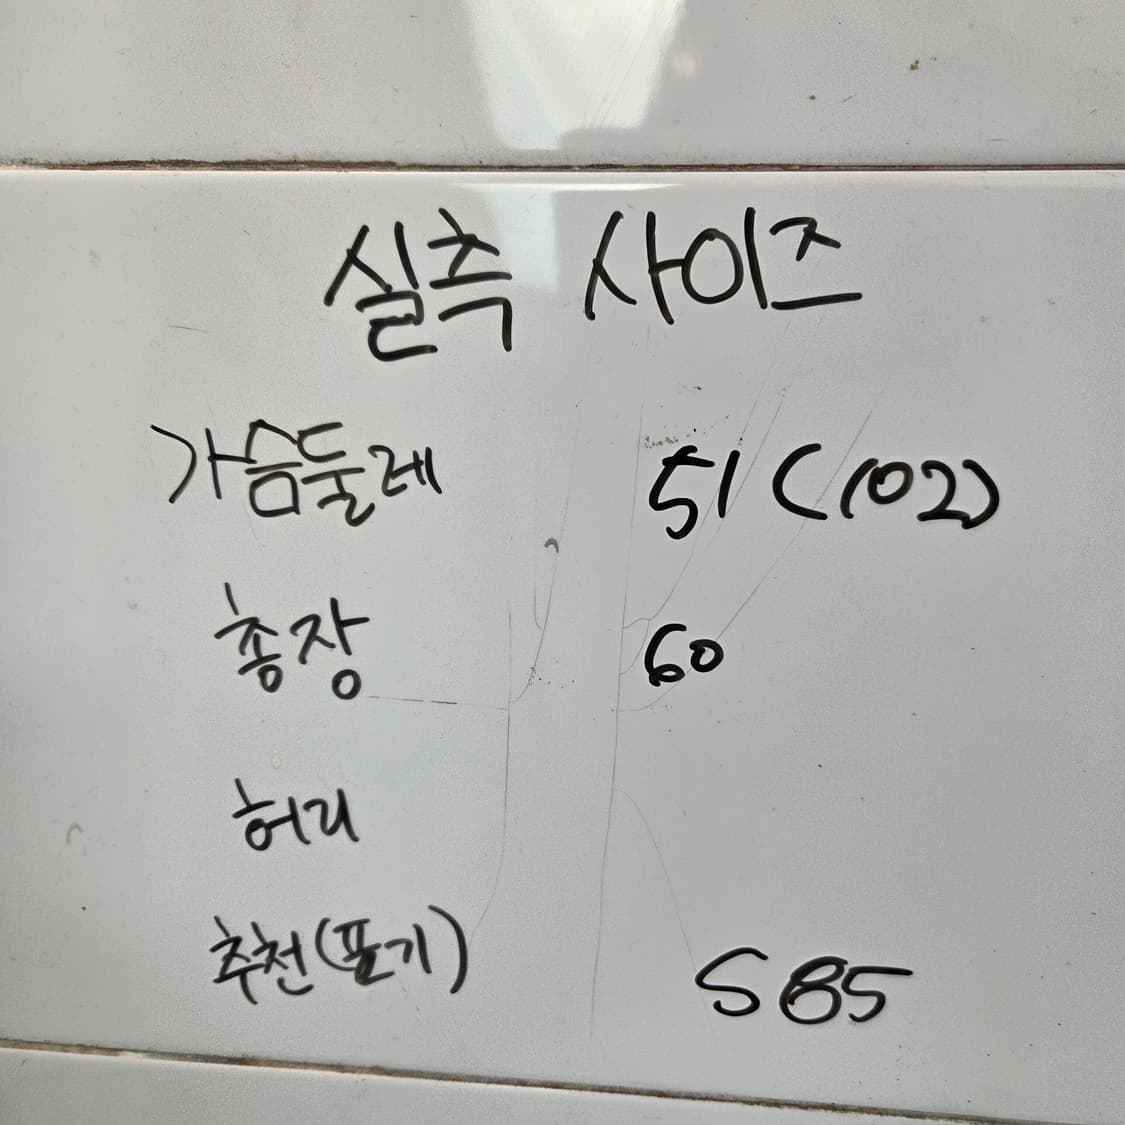 실측 사이즈
가슴둘레 51 (102)
총장 60
허리
추천(표기) S 85